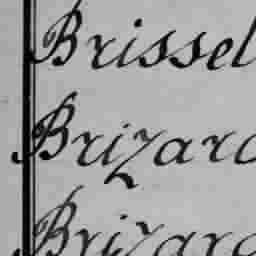 Brissel
Brizard
Brizard